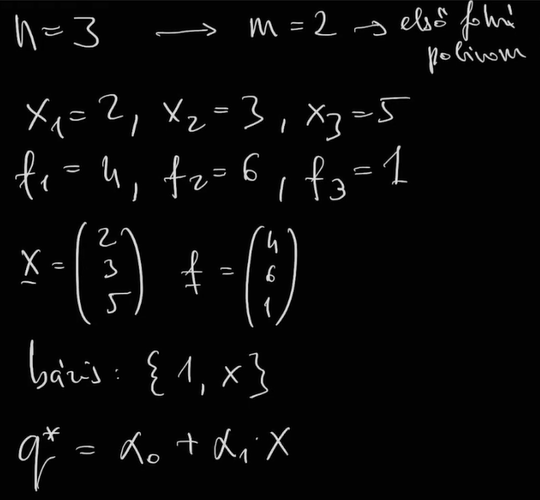 n = 3 → m = 2 → első fokú
polinom
x₁ = 2, x₂ = 3, x₃ = 5
f₁ = 4, f₂ = 6, f₃ = 1
x = (2 3 5) f = (4 6 1)
bázis: {1, x}
q* = α₀ + α₁·x